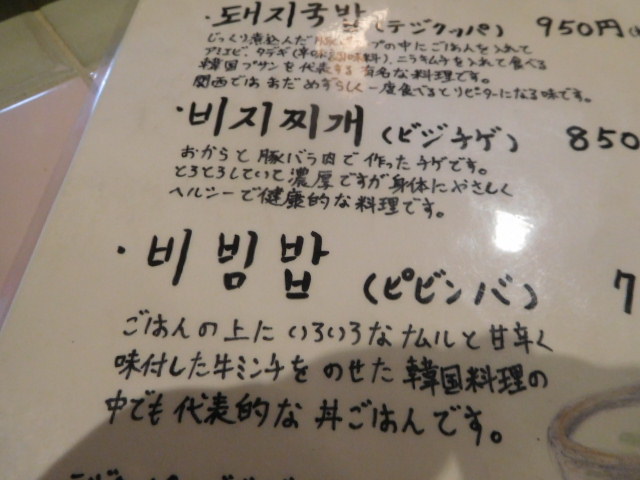 ・돼지국밥(テジクッパ) 950円
じっくり煮込んだ豚 プの中にごはんを入れて
アミエビ、タデギ(辛 味料)、ニラキムチを入れて食べる
韓国プサンを代表する有名な料理です。
関西ではまだめずらしく一度食べるとリピーターになる味です。
・비지찌개(ビジチゲ) 850
おからと豚バラ肉で作ったチゲです。
とろとろしていて濃厚ですが身体にやさしく
ヘルシーで健康的な料理です。
・비빔밥(ピビンバ) 7
ごはんの上にいろいろなナムルと甘辛く
味付した牛ミンチをのせた韓国料理の
中でも代表的な丼ごはんです。